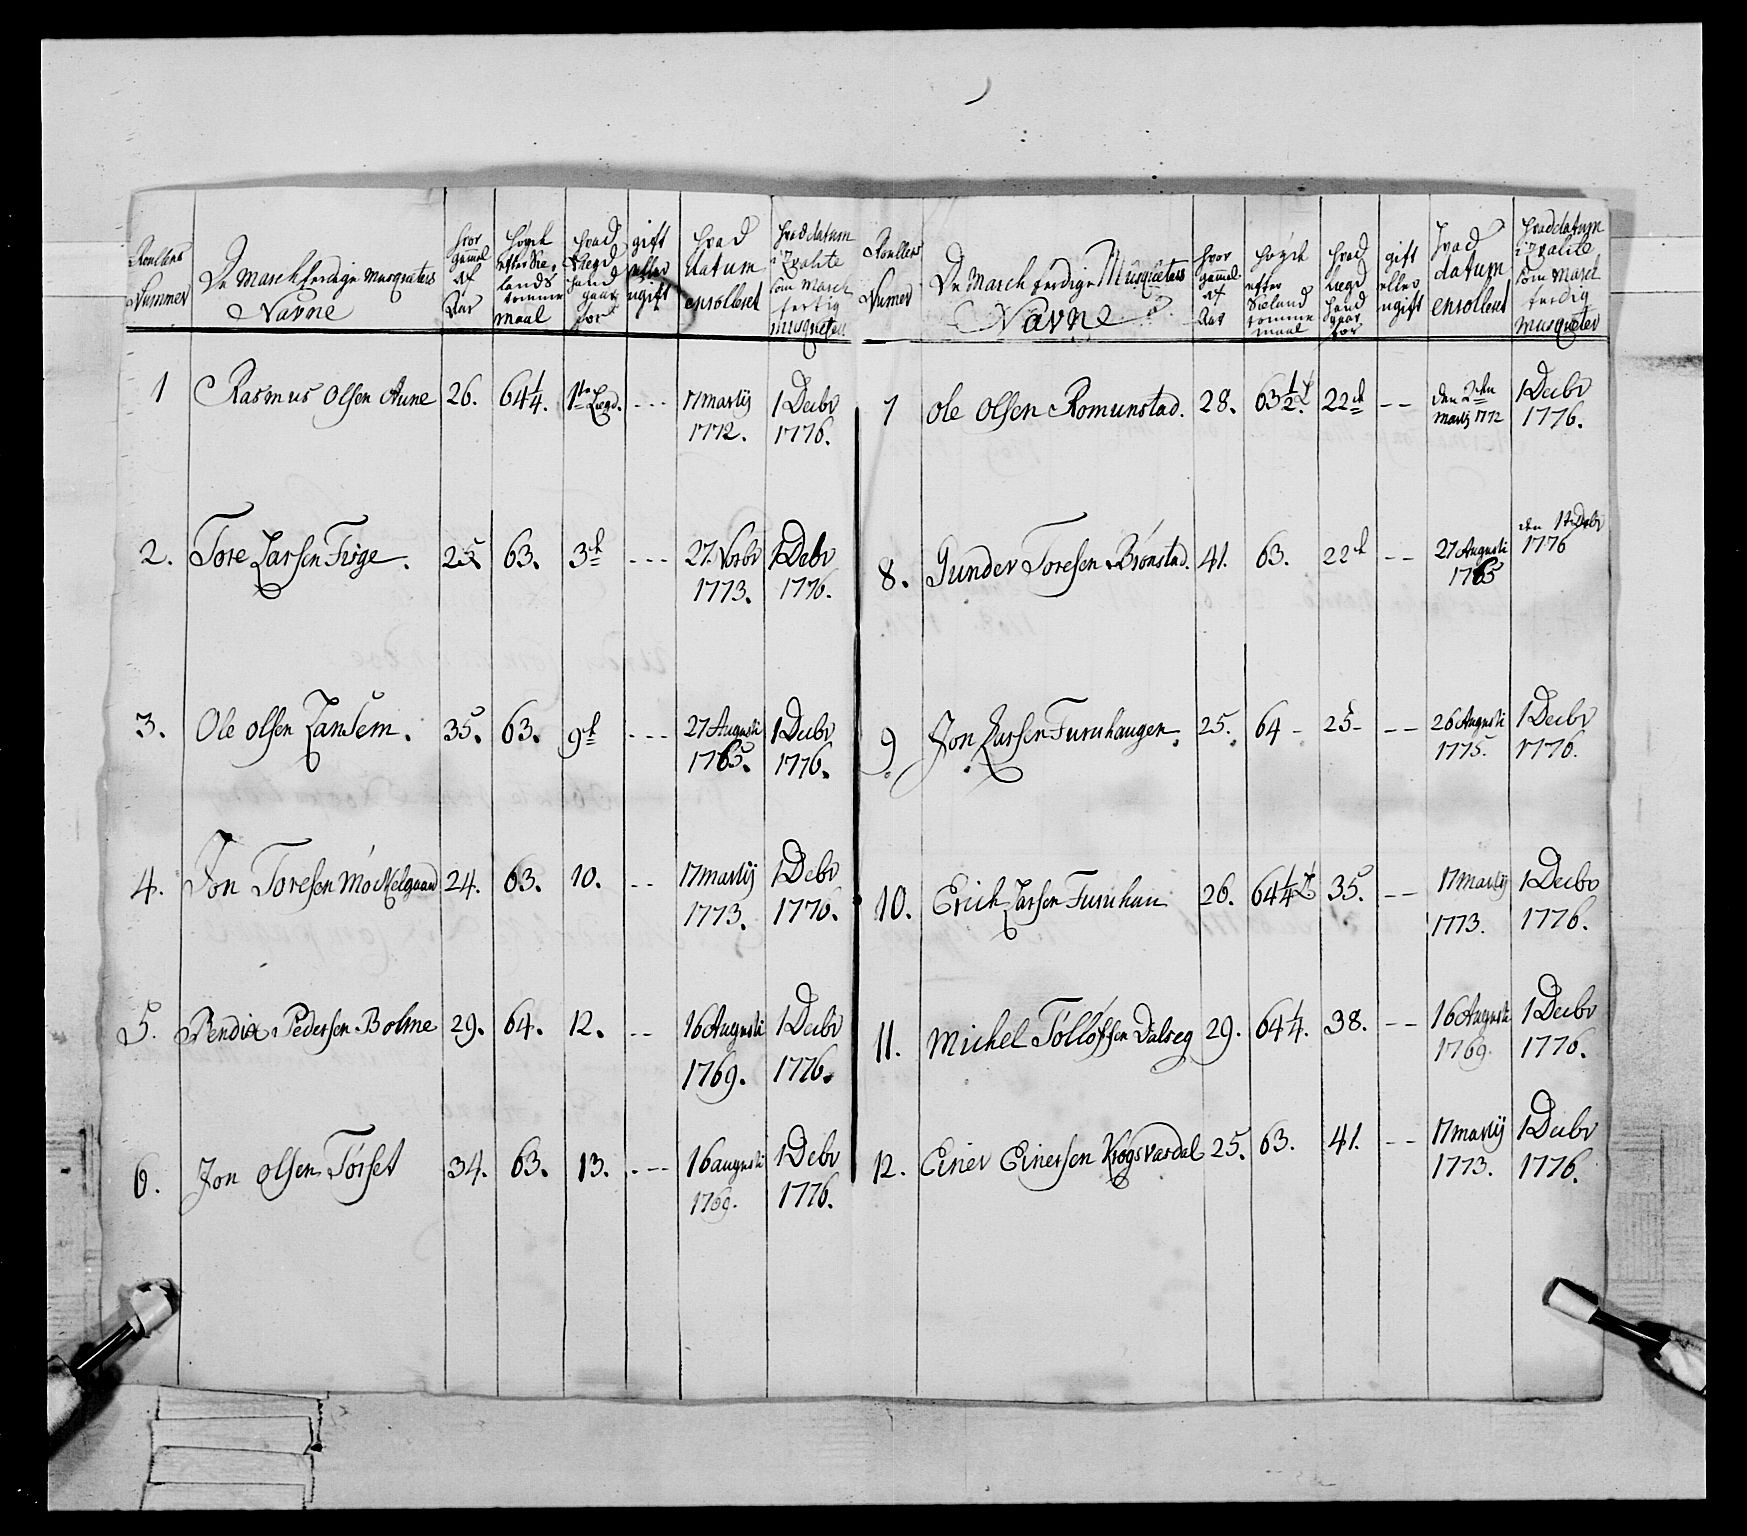 Roullens Nummer | De March ferdige Musqueters Navne | hvor gammel af Aar | høyde efter Sie. lands tomme maal | hvad Lægd hand gaar for | gift eller ugift | hvad datum enrolleret | hvad datum i qvalite som March fertig musqueter
1 | Rasmus Olsen Aune | 26. | 64 1/4. | 1te Lægd. | --- | 17 Martij 1772. | 1 Decbr 1776.
2. | Tore Larsen Fuge. | 25 | 63. | 3d | --- | 27. Novbr 1773. | 1 Debr 1776.
3. | Ole Olsen Lansem. | 35. | 63. | 9d | --- | 27 Augusti 1765. | 1 Decbr 1776.
4. | Jon Toresen Møckelgaard | 24. | 63. | 10. | -- | 17 Martij 1773. | 1 Debr 1776.
5. | Bendix Pedersen Bolme | 29. | 64. | 12. | -- | 16 Augusti 1769. | 1 Decbr 1776.
6. | Jon Olsen Tørset | 34. | 63. | 13. | --- | 16 augusti 1769. | 1 Debr 1776.
Roullens Numer | De March ferdige Musqueters Navne | hvor gammel af Aar | høyde efter Sieland tomme maal | hvad Lægd hand gaar for | gift eller ugift | hvad datum enrolleret | hvad datum i qvalite som March ferdig Musqueter
7 | Ole Olsen Romunstad. | 28. | 63 1/2. | 22d | -- | den 2den Martij 1772 | 1 Decbr 1776.
8. | Gunder Toresen Brønstad. | 41. | 63. | 22d | -- | 27 Augusti 1765 | den 1t Debr 1776
9. | Jon Larsen Furuhaugen. | 25. | 64 - | 25- | -- | 26 Augusti 1775. | 1 Decbr 1776.
10. | Erich Larsen Furuhau | 26. | 64 1/4 | 35. | -- | 17 Martij 1773. | 1 Decbr 1776.
11. | Michel Tølløfsen Dalseg | 29. | 64 1/4. | 38. | -- | 16 Augusti 1769. | 1 Decbr 1776.
12. | Einer Einersen Krogsvardal | 25. | 63. | 41. | -- | 17 Martij 1773. | 1 Decbr 1776.